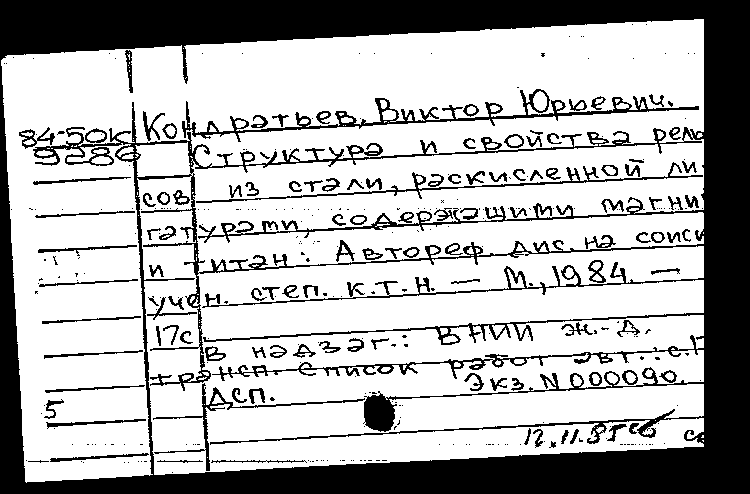 84-50к Кондратьев, Виктор Юрьевич.
9286 Структура и свойства рель
сов из стали, раскисленной ли
гатурами, содержащими магни
и титан: Автореф. дис. на соиск
учен. степ. к.т.н. — М., 1984. —
17с
В надзаг.: ВНИИ ж.-д.
трансп. Список работ авт.: с.
ДСП. Экз. N 000090.
5
12.11.85